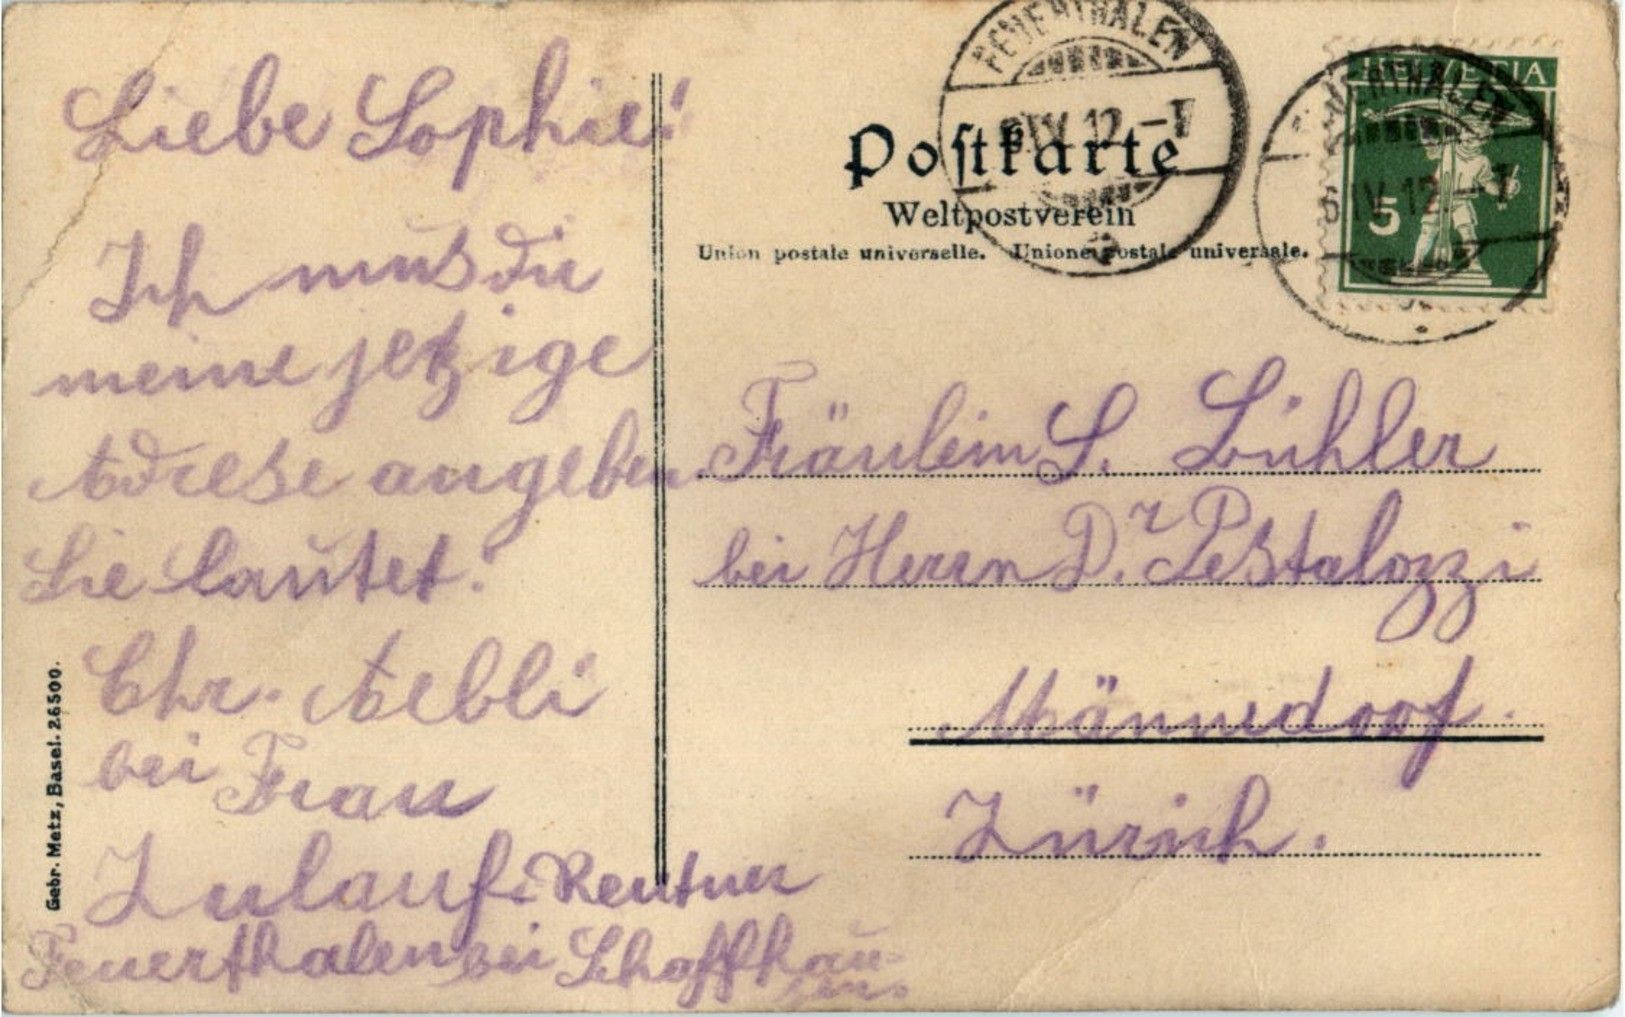 Liebe Sophie!
Ich mus dir
meine jetzige
Adrese angeben
Sie lautet:
Chr. Aebli
bei Frau
Zulauf. Rentner
Feuerthalen bei Schaffhau-
sen.
Gebr. Metz, Basel. 26500.
FEUERTHALEN
IV. 12. –
Postkarte
Weltpostverein
Union postale universelle. Unione postale universale.
HELVETIA
5
FEUERTHALEN
IV. 12. –
Fräulein S. Bühler
bei Herrn Dr. Pestalozzi
Männedorf.
Zürich.